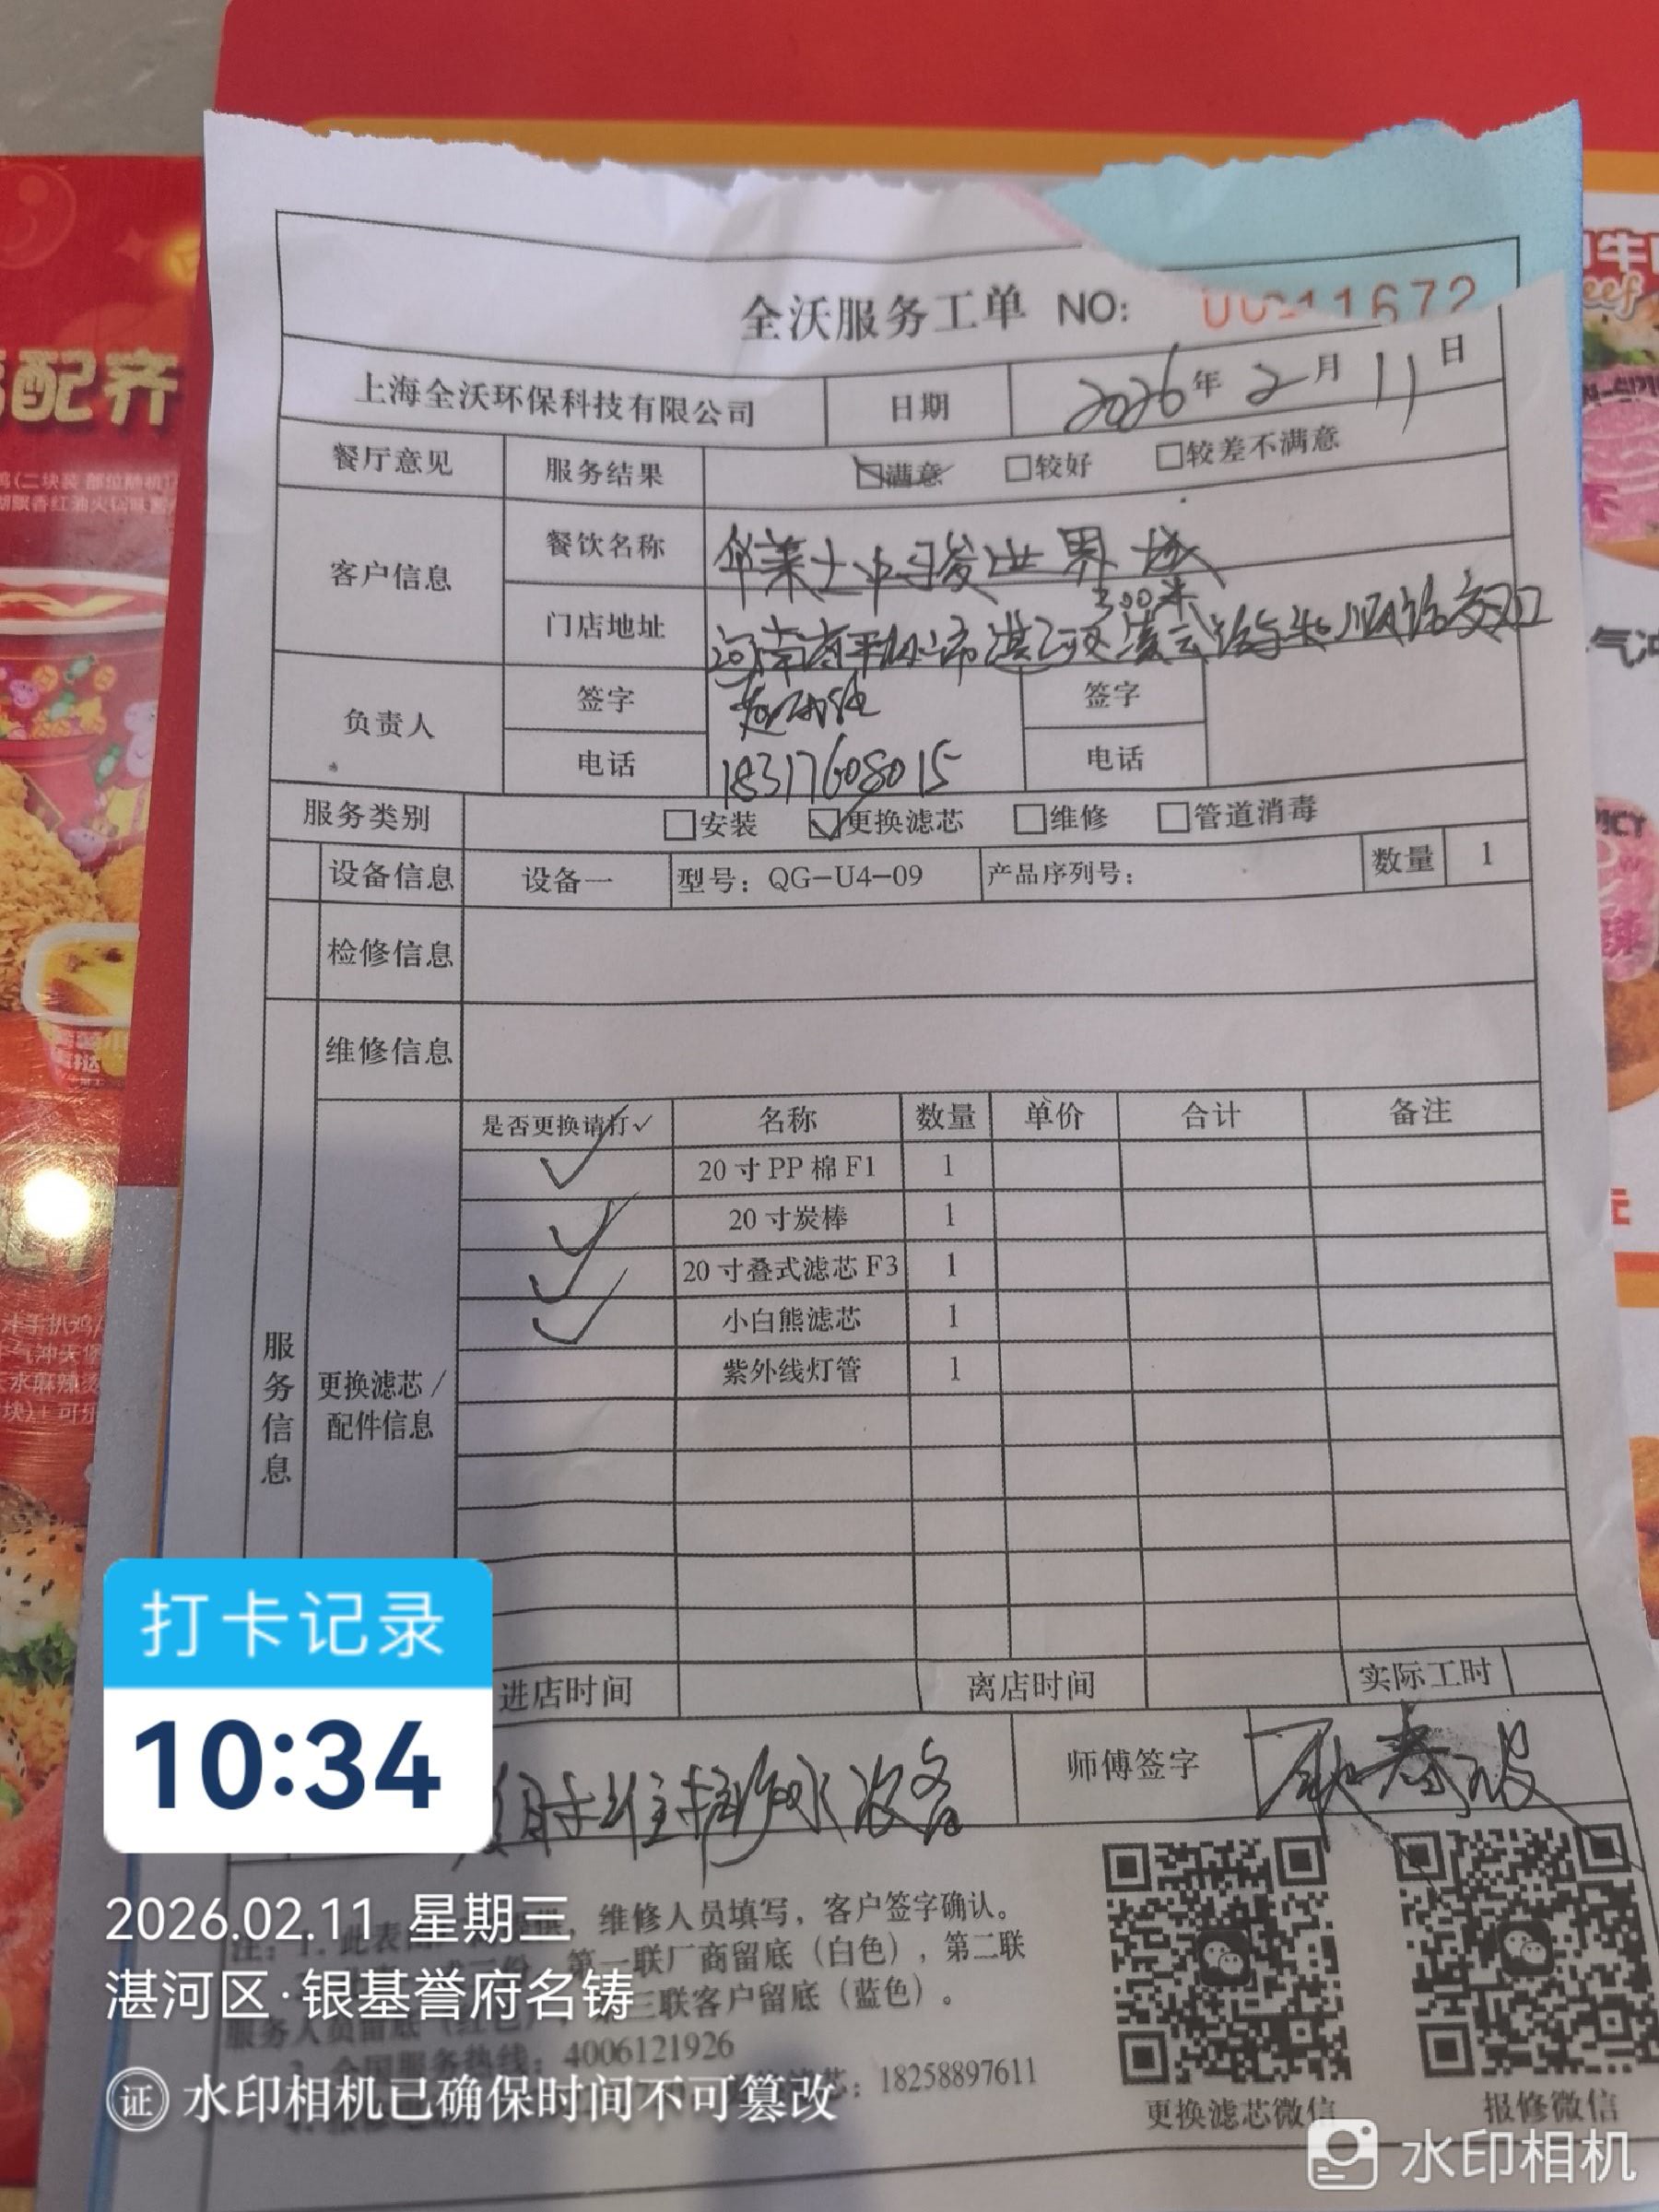 配齐
全沃服务工单 NO: 00211672
上海全沃环保科技有限公司 日期 2026年2月11日
餐厅意见 服务结果 ☑满意 □较好 □较差不满意
客户信息 餐饮名称 华莱士中骏世界城
300米
门店地址 河南省平顶山市湛河区凌云路与 顺路交叉口
负责人 签字 签字
电话 18317608015 电话
服务类别 □安装 ☑更换滤芯 □维修 □管道消毒
设备信息 设备一 型号：QG-U4-09 产品序列号： 数量 1
检修信息
维修信息
服务信息
更换滤芯/配件信息
是否更换请打✓ 名称 数量 单价 合计 备注
✓ 20寸PP棉F1 1
✓ 20寸炭棒 1
✓ 20寸叠式滤芯F3 1
✓ 小白熊滤芯 1
紫外线灯管 1
进店时间 离店时间 实际工时
时维护净水设备 师傅签字
注：1. 此表 ，维修人员填写，客户签字确认。
第一联厂商留底（白色），第二联
服务人员留底（红色） 三联客户留底（蓝色）。
全国服务热线：4006121926
：18258897611
更换滤芯微信 报修微信
打卡记录
10:34
2026.02.11 星期三
湛河区·银基誉府名铸
证 水印相机已确保时间不可篡改
水印相机